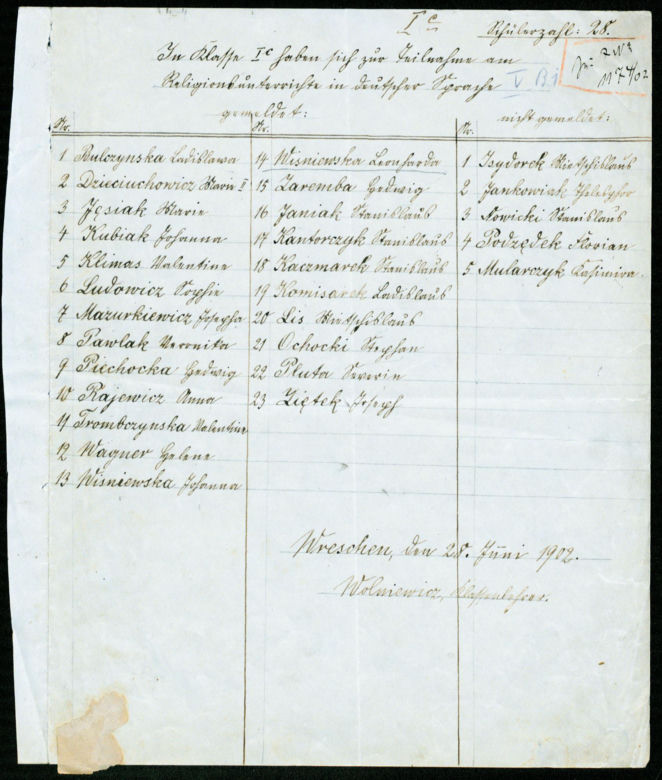 I c
Schülerzahl: 28.
In Klasse I c haben sich zur Teilnahme am
Religionsunterrichte in deutscher Sprache
gemeldet:
nicht gemeldet:
Nr.
1 Bulczynska Ladislawa
2 Dzieciuchowicz Marie II
3 Jęsiak Marie
4 Kubiak Johanna
5 Klimas Valentine
6 Ludowicz Sophie
7 Mazurkiewicz Josepha
8 Pawlak Veronika
9 Piechocka Hedwig
10 Rajewicz Anna
11 Trombczynska Valentine
12 Wagner Helene
13 Wisniewska Johanna
Nr.
14 Wisniewska Leonharda
15 Zaremba Hedwig
16 Janiak Stanislaus
17 Kantorczyk Stanislaus
18 Kaczmarek Stanislaus
19 Komisarek Ladislaus
20 Lis Mietschislaus
21 Ochocki Stephan
22 Pluta Severin
23 Ziętek Joseph
Nr.
1 Isydorek Mietschislaus
2 Jankowiak Thelesphor
3 Nowicki Stanislaus
4 Podzędek Florian
5 Mularczyk Kasimira
Wreschen, den 28. Juni 1902.
Wolniewicz, Klassenlehrer.